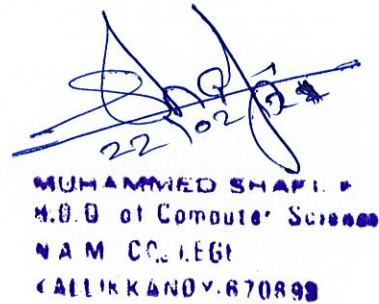 22/02/24
MUHAMMED SHAFI. P
H.O.D of Computer Science
N A M COLLEGE
KALLIKKANDY.670693